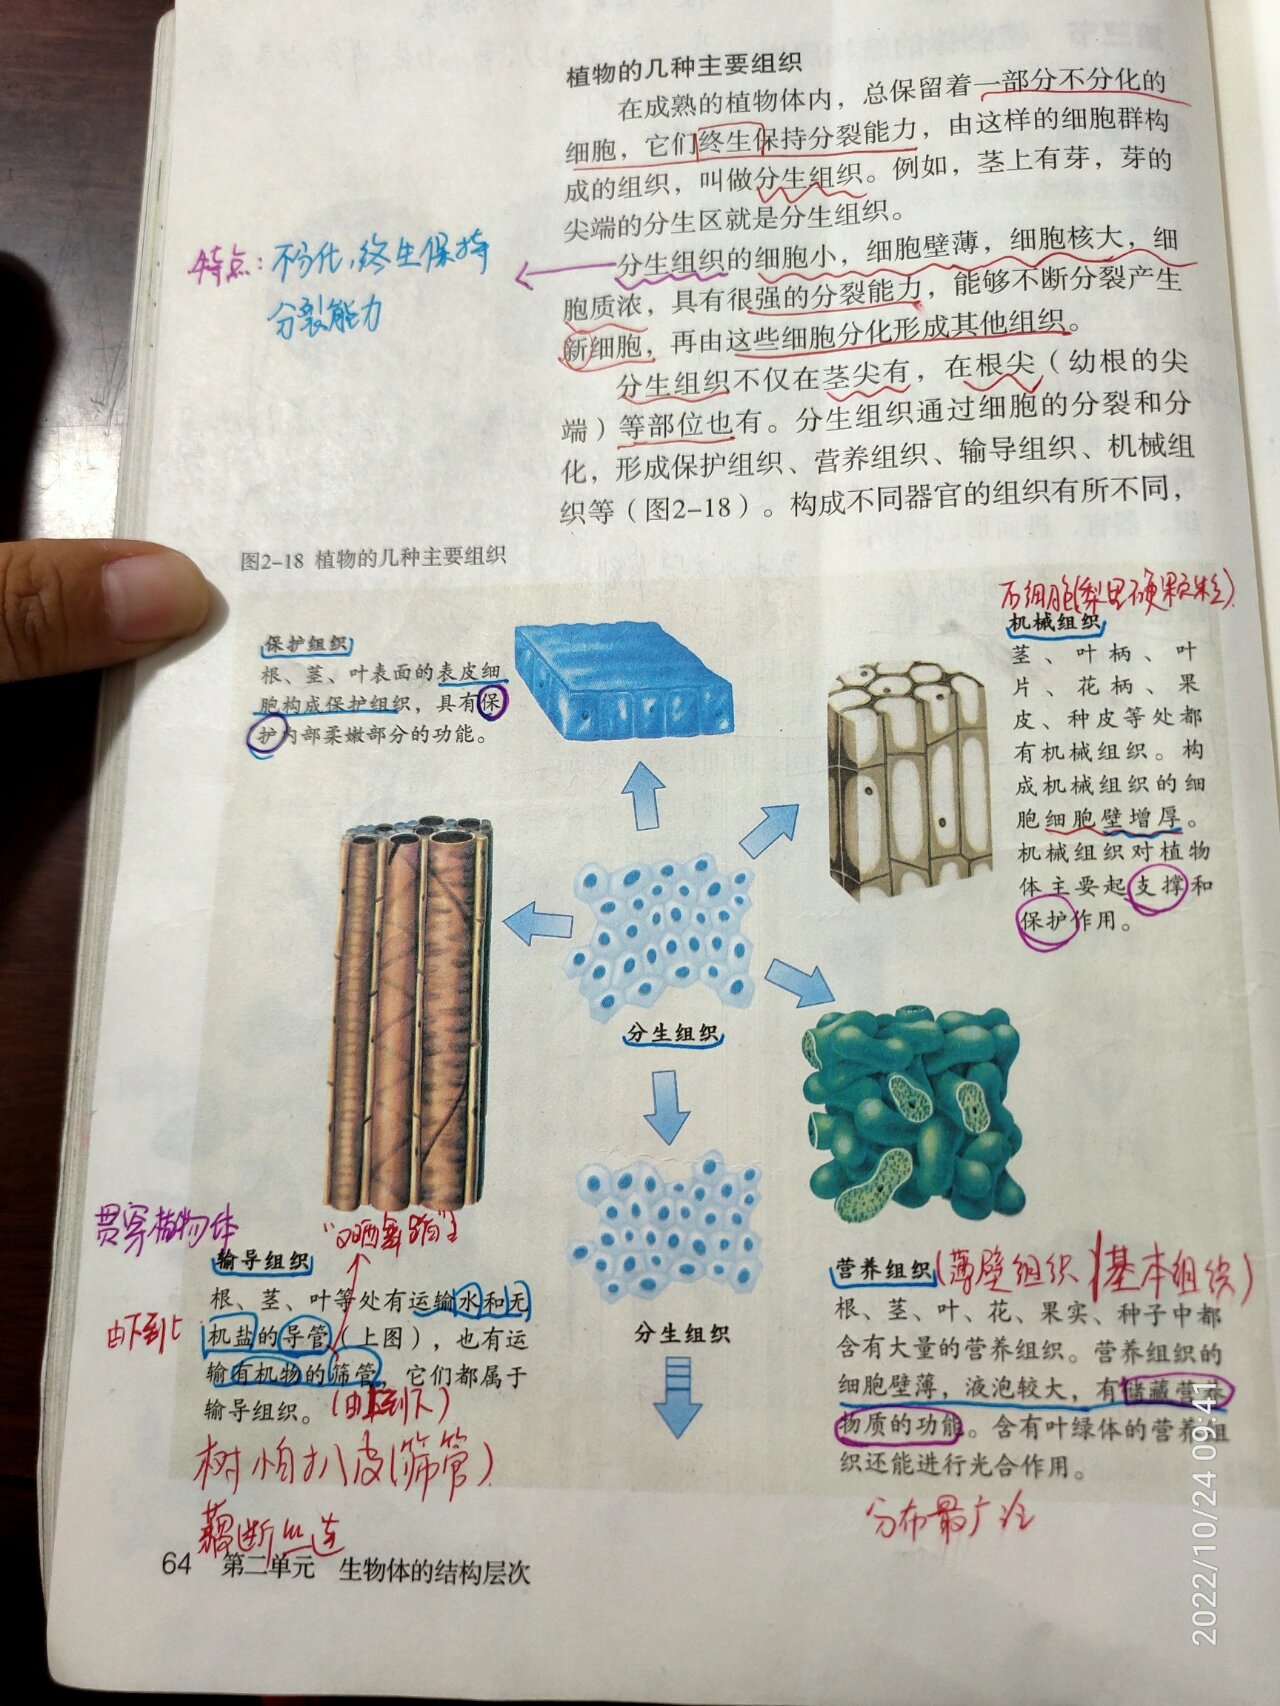 植物的几种主要组织
在成熟的植物体内，总保留着一部分不分化的
细胞，它们终生保持分裂能力，由这样的细胞群构
成的组织，叫做分生组织。例如，茎上有芽，芽的
尖端的分生区就是分生组织。
特点：不分化，终生保持
分裂能力
分生组织的细胞小，细胞壁薄，细胞核大，细
胞质浓，具有很强的分裂能力，能够不断分裂产生
新细胞，再由这些细胞分化形成其他组织。
分生组织不仅在茎尖有，在根尖（幼根的尖
端）等部位也有。分生组织通过细胞的分裂和分
化，形成保护组织、营养组织、输导组织、机械组
织等（图2-18）。构成不同器官的组织有所不同，
图2-18 植物的几种主要组织
保护组织
根、茎、叶表面的表皮细
胞构成保护组织，具有保
护内部柔嫩部分的功能。
石细胞(梨里硬颗粒)
机械组织
茎、叶柄、叶
片、花柄、果
皮、种皮等处都
有机械组织。构
成机械组织的细
胞细胞壁增厚。
机械组织对植物
体主要起支撑和
保护作用。
分生组织
贯穿植物体
输导组织
根、茎、叶等处有运输水和无
机盐的导管（上图），也有运
输有机物的筛管，它们都属于
输导组织。
由下到上
(由上到下)
树怕扒皮(筛管)
藕断丝连
分生组织
营养组织(薄壁组织/基本组织)
根、茎、叶、花、果实、种子中都
含有大量的营养组织。营养组织的
细胞壁薄，液泡较大，有储藏营养
物质的功能。含有叶绿体的营养组
织还能进行光合作用。
分布最广泛
64 第二单元 生物体的结构层次
2022/10/24 09:41